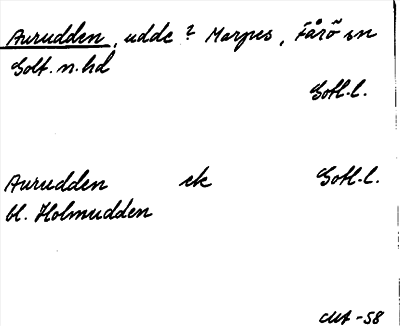 Aurudden, udde ? Marpes, Fårö sn
Gotl. n. hd
Gotl. l.
Aurudden ek Gotl. l.
bl. Holmudden
-58